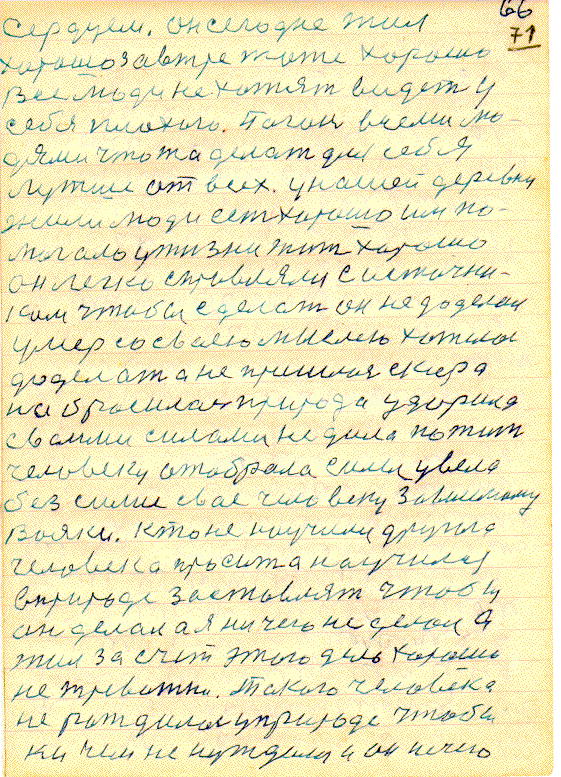 66
71
сердцем. он сегодне жил
хорошо завтре тоже хорошо
все люди не хотят видеть у
себя плохого. Погон всеми лю-
дями что жа делат для себя
лутше от всех. у нашей деревни
жили люди сеют хорошо им по-
могало у жизни жит хорошо
он легко справляли с источни-
ком чтобы сделат он не доделал
умер со своею мыслею хотелос
доделат а не пришлося скора
набросилас природа ударила
своими силами не дала пожит
человеку отобрала сили увела
без сили свае человеку
Вояки. Кто не научили другога
человека проста научился
в природе заставлят чтобы
он делал а я ничего не делал а
жил за счет этого дела хорошо
не тривожно. Такого человека
не рождалос у природе чтобы
ни чем не нуждалса и он ничего